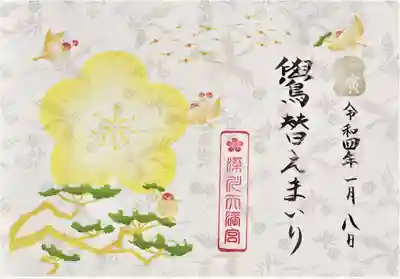 令和四年一月八日
鷽替えまいり
天満宮